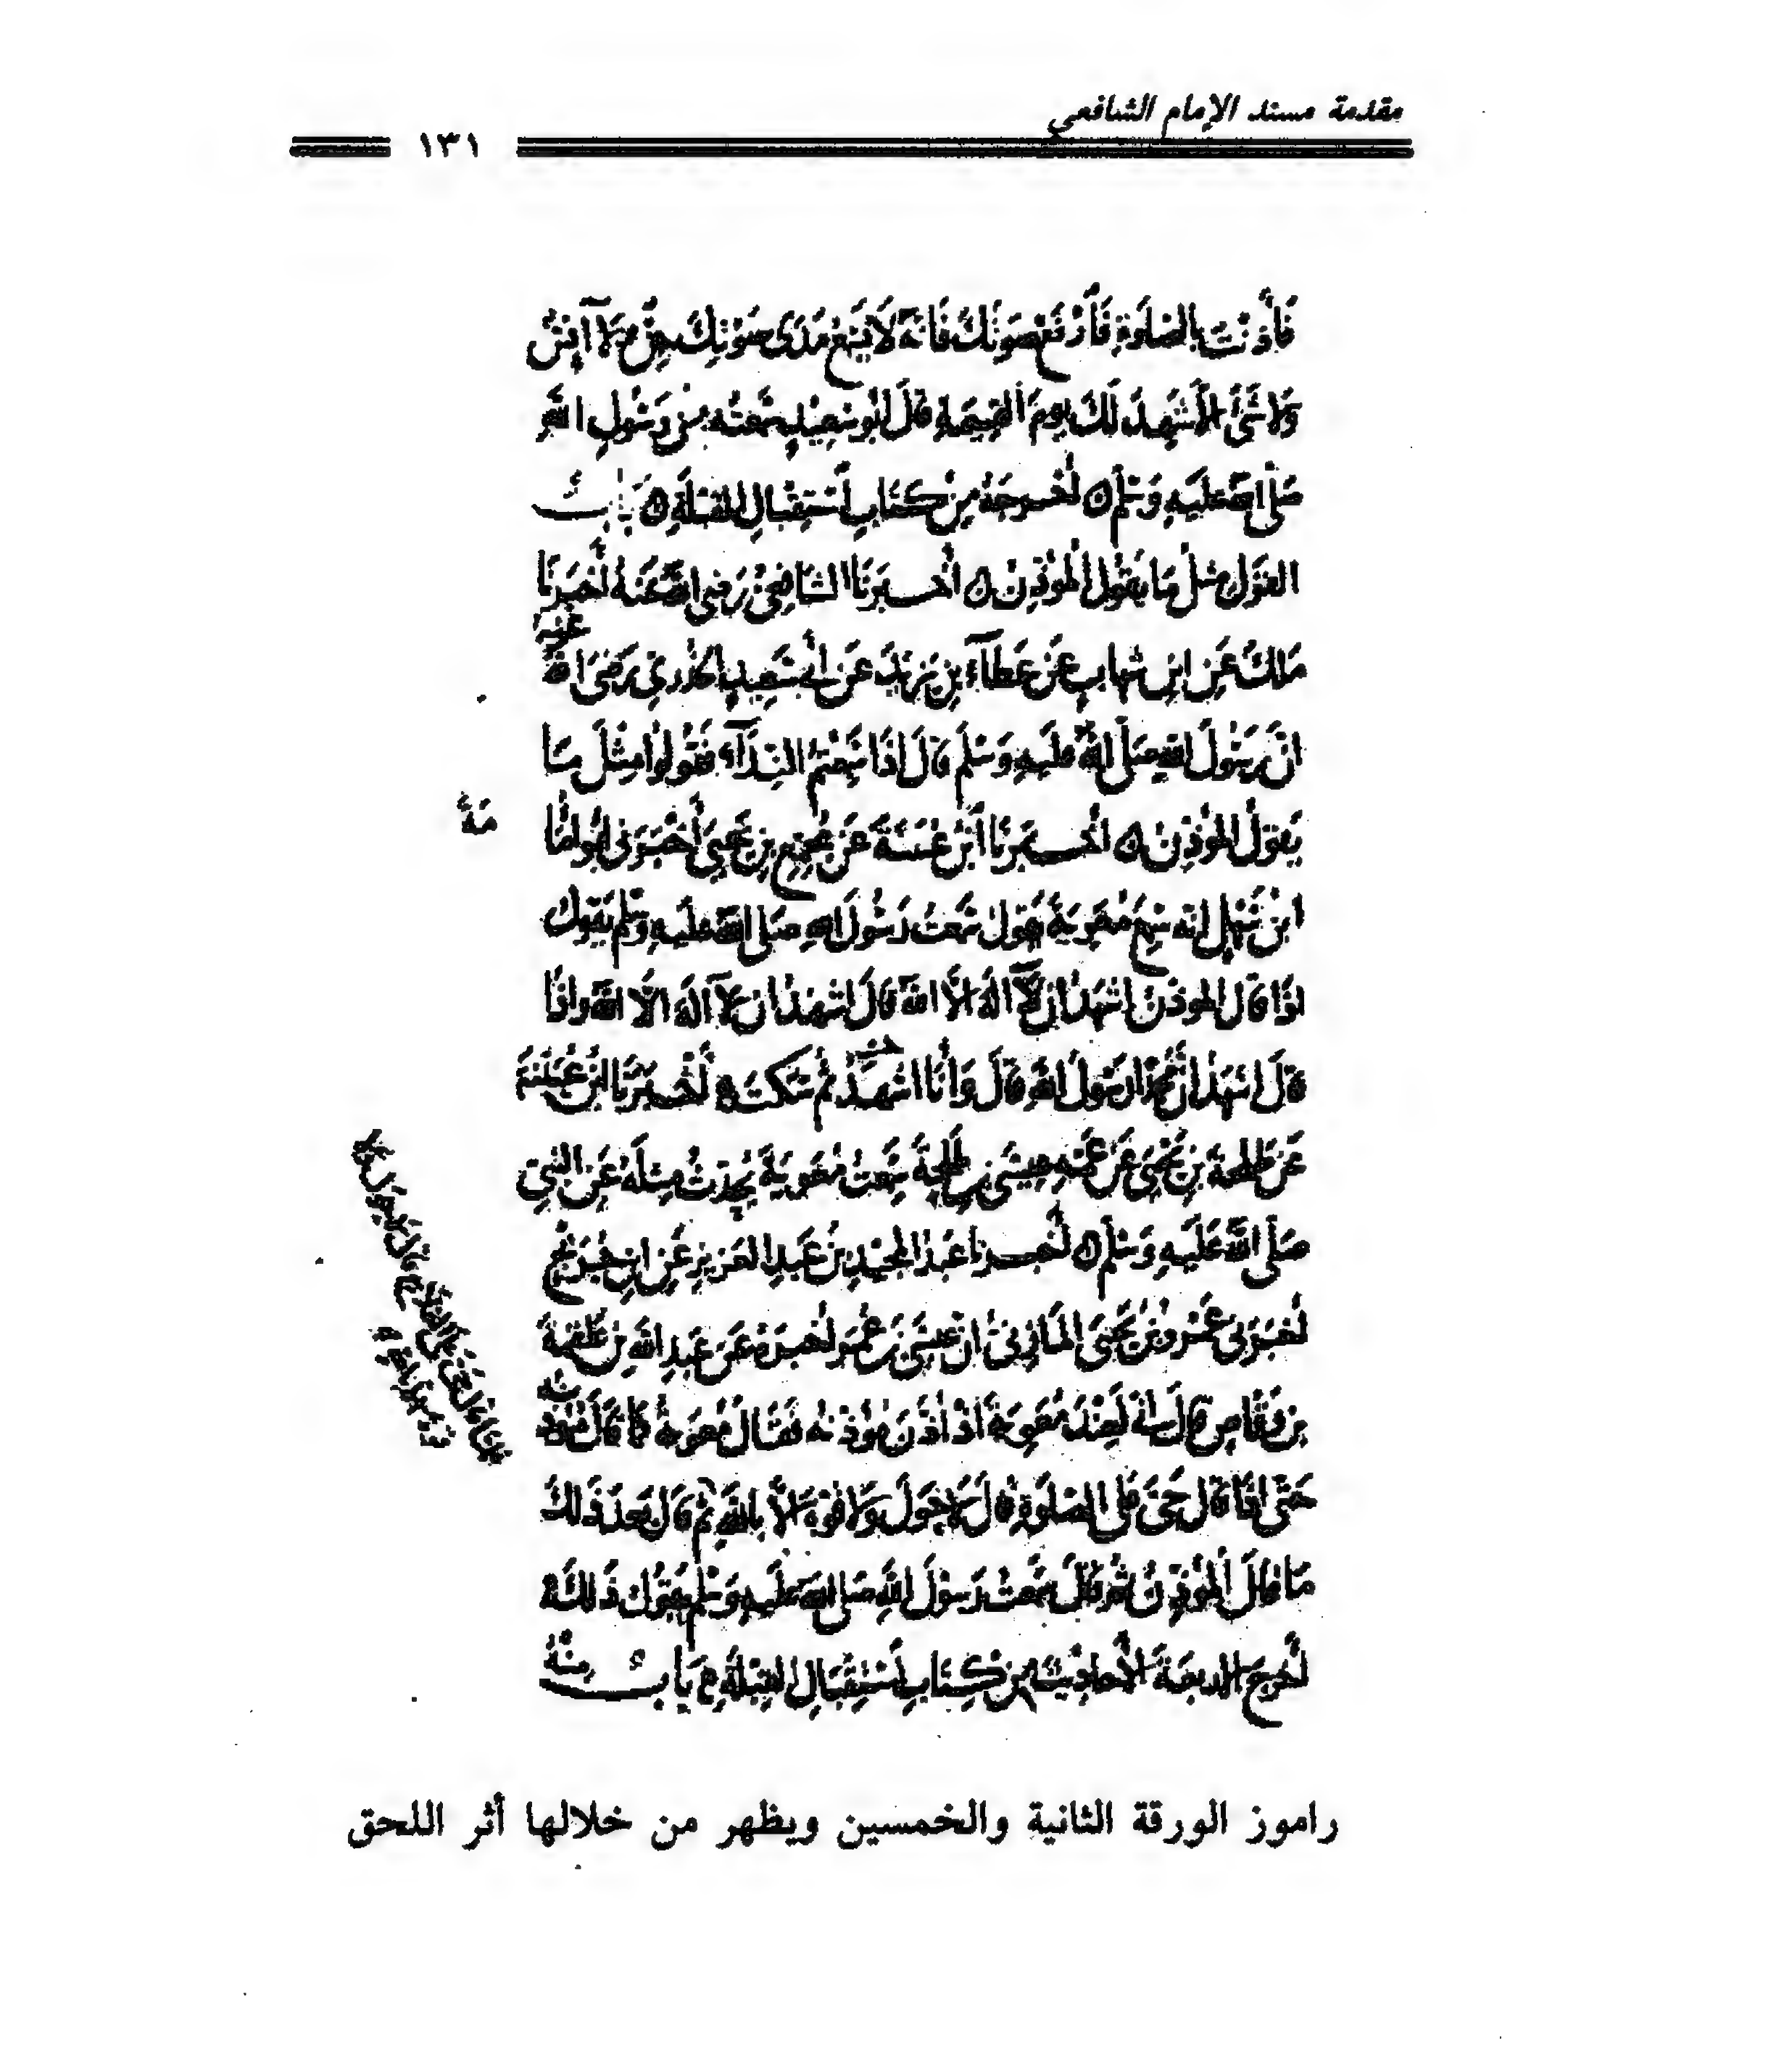 مقدمة مسند الإمام الشافعي
١٣١
فَأَذَّنْتَ بِالصَّلَوةِ فَأَرْفَعْ صَوْتَكَ فَإِنَّهُ لَا يَسْمَعُ مَدَى صَوْتِكَ جِنٌّ وَلَا إِنْسٌ
وَلَا شَيْءٌ إِلَّا شَهِدَ لَكَ يَوْمَ الْقِيمَةِ قَالَ أَبُو سَعِيدٍ سَمِعْتُهُ مِنْ رَسُولِ اللهِ
صَلَّى اللهُ عَلَيْهِ وَسَلَّمَ أَخْرَجَهُ مِنْ كِتَابِ اسْتِقْبَالِ القِبْلَةِ بَابُ
القَوْلِ مِثْلَ مَا يَقُولُ الْمُؤَذِّنُ أَخْبَرَنَا الشَّافِعِيُّ رَضِيَ اللهُ عَنْهُ أَخْبَرَنَا
مَلِكٌ عَنِ ابْنِ شِهَابٍ عَنْ عَطَاءِ بْنِ يَزِيدَ عَنْ أَبِي سَعِيدٍ الْخُدْرِيِّ رَضِيَ اللهُ عَنْهُ
أَنَّ رَسُولَ اللهِ صَلَّى اللهُ عَلَيْهِ وَسَلَّمَ قَالَ إِذَا سَمِعْتُمُ النِّدَآءَ فَقُولُوا مِثْلَ مَا
يَقُولُ الْمُؤَذِّنُ أَخْبَرَنَا ابْنُ عُيَيْنَةَ عَنْ مُجَمِّعِ بْنِ يَحْيَى أَخْبَرَنِي أَبُو أُمَامَةَ
ابْنُ سَهْلٍ إِنَّهُ سَمِعَ مُعَوِيَةَ يَقُولُ سَمِعْتُ رَسُولَ اللهِ صَلَّى اللهُ عَلَيْهِ وَسَلَّمَ يَقُولُ
إِذَا قَالَ الْمُؤَذِّنُ أَشْهَدُ أَنْ لَا إِلَهَ إِلَّا اللهُ قَالَ أَشْهَدُ أَنْ لَا إِلَهَ إِلَّا اللهُ وَإِذَا
قَالَ أَشْهَدُ أَنَّ مُحَمَّدًا رَسُولُ اللهِ قَالَ وَأَنَا أَشْهَدُ ثُمَّ سَكَتَ أَخْبَرَنَا ابْنُ عُيَيْنَةَ
عَنْ طَلْحَةَ بْنِ يَحْيَى عَنْ عَمِّهِ عِيسَى بْنِ طَلْحَةَ سَمِعْتُ مُعَوِيَةَ يُحَدِّثُ مِثْلَهُ عَنِ النَّبِيِّ
صَلَّى اللهُ عَلَيْهِ وَسَلَّمَ أَخْبَرَنَا عَبْدُ الْمَجِيدِ بْنُ عَبْدِ العَزِيزِ عَنِ ابْنِ جُرَيْجٍ
أَخْبَرَنِي عَمْرُو بْنُ يَحْيَى الْمَازِنِيُّ أَنَّ عِيسَى بْنَ عُمَرَ أَخْبَرَهُ عَنْ عَبْدِ اللهِ بْنِ عَلْقَمَةَ
بْنِ وَقَّاصٍ قَالَ إِنِّي لَعِنْدَ مُعَوِيَةَ إِذْ أَذَّنَ مُؤَذِّنُهُ فَقَالَ مُعَوِيَةُ كَمَا قَالَ مُؤَذِّنُهُ
حَتَّى إِذَا قَالَ حَيَّ عَلَى الصَّلَوةِ قَالَ لَا حَوْلَ وَلَا قُوَّةَ إِلَّا بِاللهِ ثُمَّ قَالَ بَعْدَ ذَلِكَ
مَا قَالَ الْمُؤَذِّنُ ثُمَّ قَالَ سَمِعْتُ رَسُولَ اللهِ صَلَّى اللهُ عَلَيْهِ وَسَلَّمَ يَقُولُ ذَلِكَ
أَخْرَجَ الأَرْبَعَةَ الأَحَادِيثَ مِنْ كِتَابِ اسْتِقْبَالِ القِبْلَةِ بَابٌ مِنْهُ
راموز الورقة الثانية والخمسين ويظهر من خلالها أثر اللحق